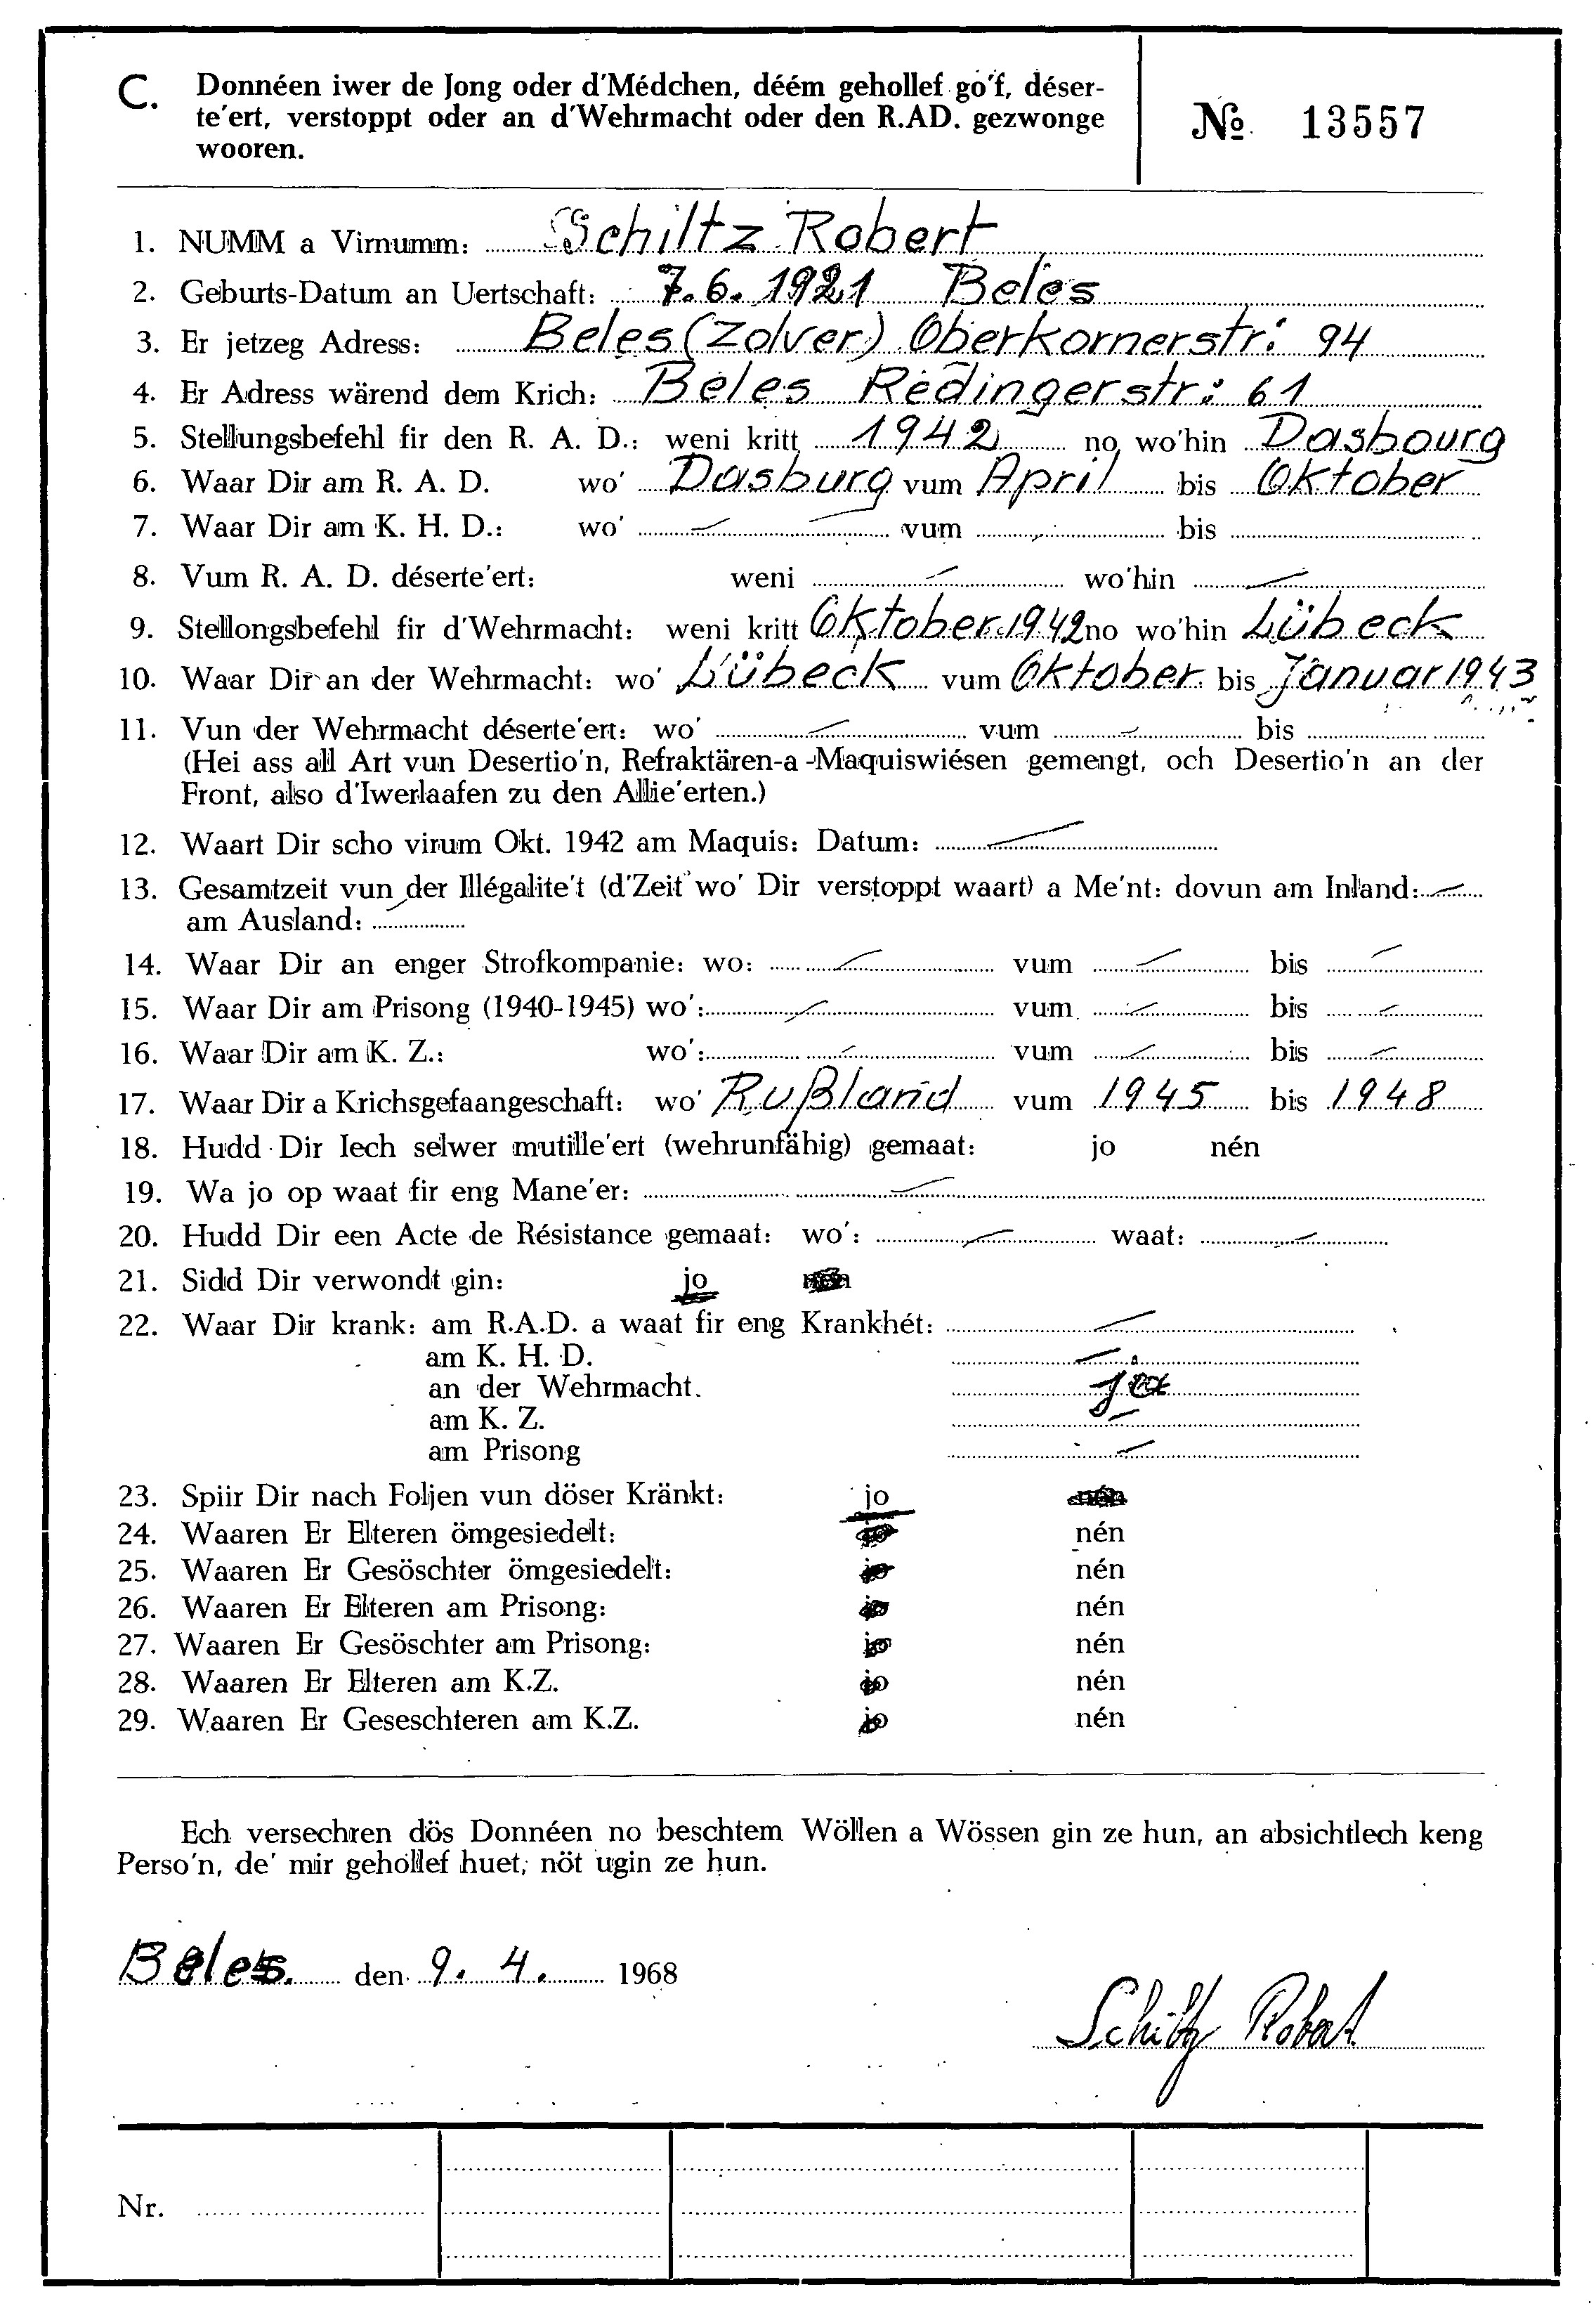 C. Donnéen iwer de Jong oder d'Médchen, déém gehollef go'f, déser-
te'ert, verstoppt oder an d'Wehrmacht oder den R.AD. gezwonge
wooren.
№ 13557
1. NUMM a Virnumm: Schiltz Robert
2. Geburts-Datum an Uertschaft: 7.6.1921 Beles
3. Er jetzeg Adress: Beles (Zolver) Oberkornerstr: 94
4. Er Adress wärend dem Krich: Beles Rédingerstr: 61
5. Stellungsbefehl fir den R. A. D.: weni kritt 1942 no wo'hin Dasbourg
6. Waar Dir am R. A. D. wo' Dasburg vum April bis Oktober
7. Waar Dir am K. H. D.: wo' — vum — bis
8. Vum R. A. D. déserte'ert: weni — wo'hin —
9. Stellongsbefehl fir d'Wehrmacht: weni kritt Oktober 1942 no wo'hin Lübeck
10. Waar Dir an der Wehrmacht: wo' Lübeck vum Oktober bis Januar 1943
11. Vun der Wehrmacht déserte'ert: wo' — vum — bis
(Hei ass all Art vun Desertio'n, Refraktären-a-Maquiswiésen gemengt, och Desertio'n an der
Front, also d'Iwerlaafen zu den Allie'erten.)
12. Waart Dir scho virum Okt. 1942 am Maquis: Datum: —
13. Gesamtzeit vun der Illégalite't (d'Zeit wo' Dir verstoppt waart) a Me'nt: dovun am Inland: —
am Ausland: —
14. Waar Dir an enger Strofkompanie: wo: — vum — bis —
15. Waar Dir am Prisong (1940-1945) wo': — vum — bis —
16. Waar Dir am K. Z.: wo': — vum — bis —
17. Waar Dir a Krichsgefaangeschaft: wo' Rußland vum 1945 bis 1948
18. Hudd Dir Iech selwer mutille'ert (wehrunfähig) gemaat: jo nén
19. Wa jo op waat fir eng Mane'er: —
20. Hudd Dir een Acte de Résistance gemaat: wo': — waat: —
21. Sidd Dir verwondt gin: jo nén
22. Waar Dir krank: am R.A.D. a waat fir eng Krankhét: —
am K. H. D. —
an der Wehrmacht. ja
am K. Z. —
am Prisong —
23. Spiir Dir nach Foljen vun döser Kränkt: jo nén
24. Waaren Er Elteren ömgesiedelt: jo nén
25. Waaren Er Gesöschter ömgesiedelt: jo nén
26. Waaren Er Elteren am Prisong: jo nén
27. Waaren Er Gesöschter am Prisong: jo nén
28. Waaren Er Elteren am K.Z. jo nén
29. Waaren Er Geseschteren am K.Z. jo nén
Ech versechren dös Donnéen no beschtem Wöllen a Wössen gin ze hun, an absichtlech keng
Perso'n, de' mir gehollef huet, nöt ugin ze hun.
Beles. den 9. 4. 1968
Schiltz Robert
Nr.